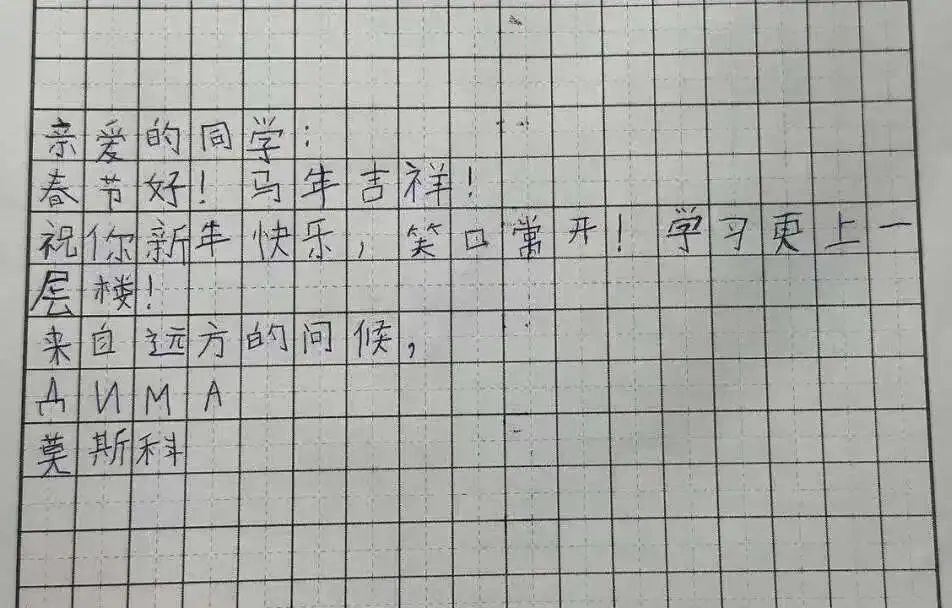 亲爱的同学：
春节好！马年吉祥！
祝你新年快乐，笑口常开！学习更上一
层楼！
来自远方的问候，
ДИМА
莫斯科